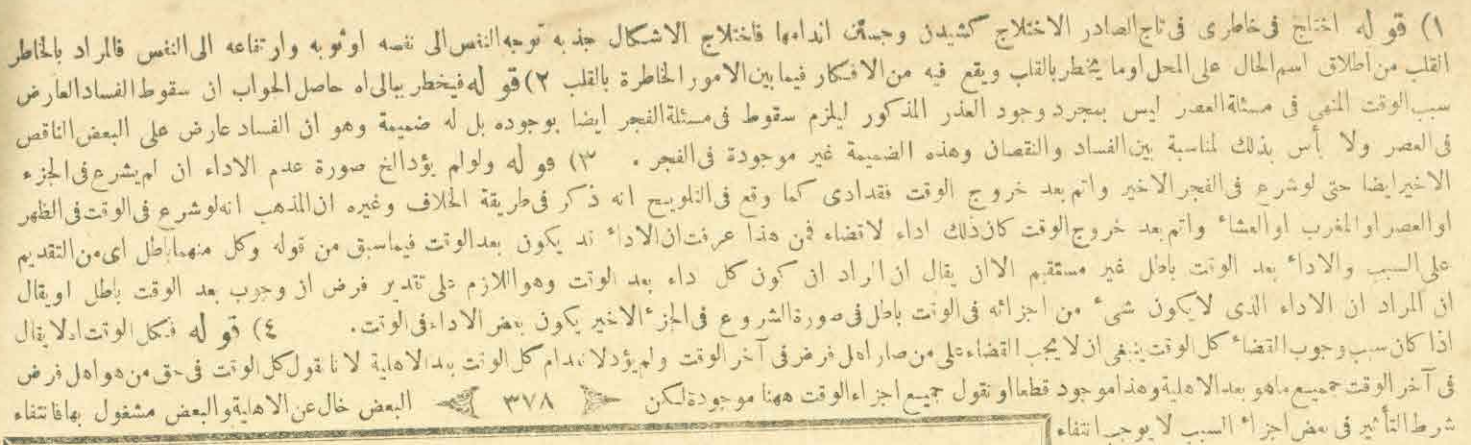 ١) قوله اختلج فى خاطرى فى تاج المصادر الاختلاج كشيدن وجستن اندامها فاختلاج الاشكال جذبه توجه النفس الى نفسه اوثوبه وارتفاعه الى النفس فالمراد بالخاطر
القلب من اطلاق اسم الحال على المحل اوما يخطر بالقلب ويقع فيه من الافكار فيما بين الامور الخاطرة بالقلب ٢) قوله فيخطر ببالى اه حاصل الجواب ان سقوط الفساد العارض
سبب الوقت المنهى فى مسئلة العصر ليس بمجرد وجود العذر المذكور ليلزم سقوط فى مسئلة الفجر ايضا بوجوده بل له ضميمة وهو ان الفساد عارض على البعض الناقص
فى العصر ولا بأس بذلك لمناسبة بين الفساد والنقصان وهذه الضميمة غير موجودة فى الفجر . ٣) قوله ولولم يؤد الخ صورة عدم الاداء ان لم يشرع فى الجزء
الاخير ايضا حتى لو شرع فى الفجر الاخير واتم بعد خروج الوقت فقد ادى كما وقع فى التلويح انه ذكر فى طريقة الخلاف وغيره ان المذهب انه لو شرع فى الوقت فى الظهر
او العصر او المغرب او العشاء واتم بعد خروج الوقت كان ذلك اداء لا قضاء فمن هذا عرفت ان الاداء قد يكون بعد الوقت فيما سبق من قوله وكل منهما باطل اى من التقديم
على السبب والاداء بعد الوقت باطل غير مستقيم الا ان يقال ان المراد ان كون كل داء بعد الوقت وهو اللازم على تقدير فرض ان وجوب بعد الوقت باطل او يقال
ان المراد ان الاداء الذى لايكون شىء من اجزائه فى الوقت باطل فى صورة الشروع فى الجزء الاخير يكون بعض الاداء فى الوقت. ٤) قوله فكل الوقت اد لا يقال
اذا كان سبب وجوب القضاء كل الوقت ينبغى ان لا يجب القضاء على من صار اهل فرض فى آخر الوقت ولم يؤد لانعدام كل الوقت بعد الاهلية لانا نقول كل الوقت فى حق من هو اهل فرض
فى آخر الوقت جميع ماهو بعد الاهلية وهذا موجود قطعا او نقول جميع اجزاء الوقت ههنا موجودة لكن ٣٧٨ البعض خال عن الاهلية والبعض مشغول بها فانتفاء
شرط التأثير فى بعض اجزاء السبب لا يوجب انتفاء